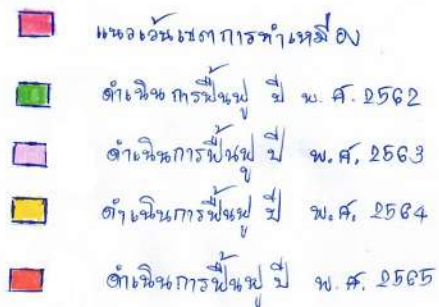 แนวเว้นเขตการทำเหมือง
ดำเนินการฟื้นฟู ปี พ.ศ. 2562
ดำเนินการฟื้นฟู ปี พ.ศ. 2563
ดำเนินการฟื้นฟู ปี พ.ศ. 2564
ดำเนินการฟื้นฟู ปี พ.ศ. 2565